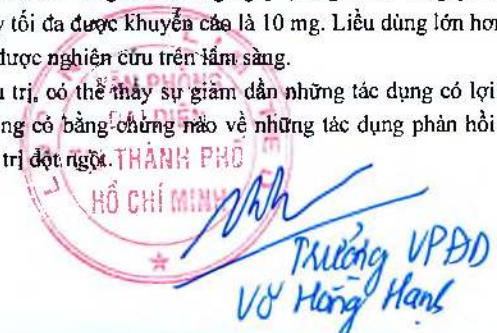 y tối đa được khuyến cáo là 10 mg. Liều dùng lớn hơn
được nghiên cứu trên lâm sàng.
trị, có thể thấy sự giảm dần những tác dụng có lợi
ng có bằng chứng nào về những tác dụng phản hồi
trị đột ngột.
VĂN PHÒNG
ĐẠI DIỆN
THÀNH PHỐ
HỒ CHÍ MINH
Trưởng VPĐD
Võ Hồng Hạnh